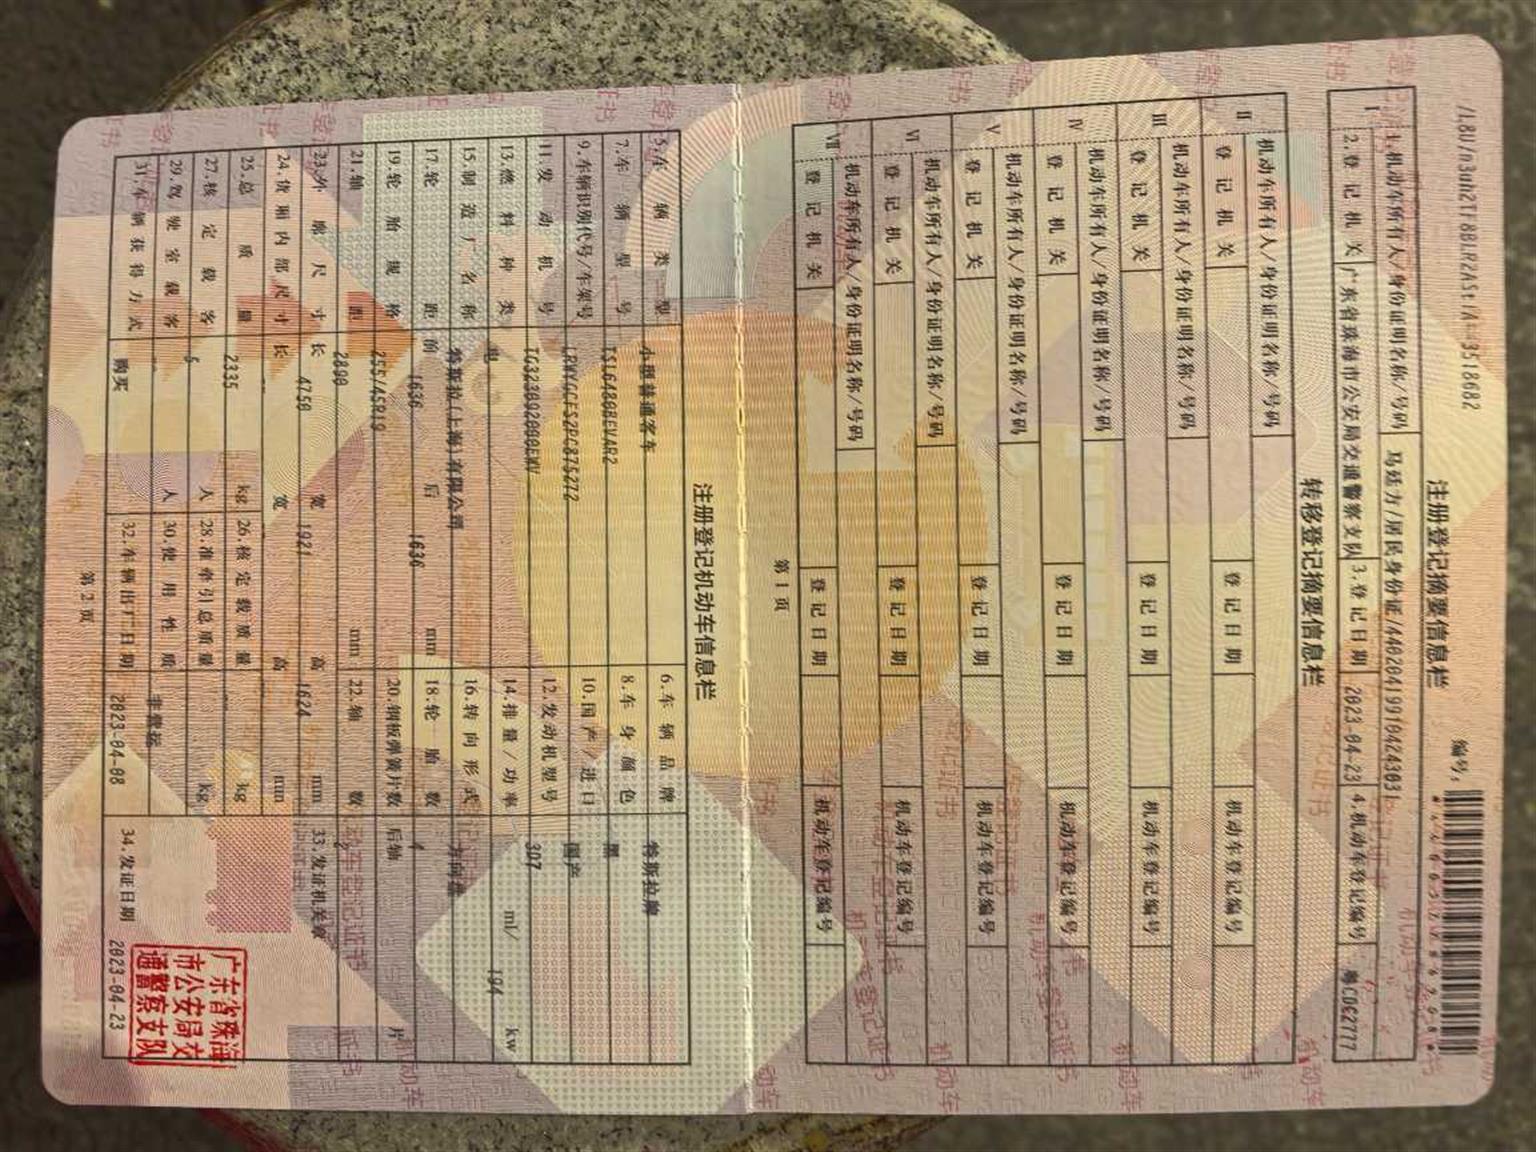 /L8U/n3uh2Tf8BLR2ASt/A==3518682
编号:
注册登记摘要信息栏
I 1.机动车所有人/身份证明名称/号码 马廷方/居民身份证/440204199104243031
2.登记机关 广东省珠海市公安局交通警察支队 3.登记日期 2023-04-23 4.机动车登记编号
转移登记摘要信息栏
II 机动车所有人/身份证明名称/号码
登记机关 登记日期 机动车登记编号
III 机动车所有人/身份证明名称/号码
登记机关 登记日期 机动车登记编号
IV 机动车所有人/身份证明名称/号码
登记机关 登记日期 机动车登记编号
V 机动车所有人/身份证明名称/号码
登记机关 登记日期 机动车登记编号
VI 机动车所有人/身份证明名称/号码
登记机关 登记日期 机动车登记编号
VII 机动车所有人/身份证明名称/号码
登记机关 登记日期 机动车登记编号
第 1 页
注册登记机动车信息栏
5.车辆类型 小型普通客车 6.车辆品牌 特斯拉牌
7.车辆型号 TSL6480BEVAR2 8.车身颜色 黑
9.车辆识别代号/车架号 LRWYGCFS2PC875272 10.国产/进口 国产
11.发动机号 12.发动机型号 3D7
13.燃料种类 电 14.排量/功率 ml/ 194 kw
15.制造厂名称 特斯拉(上海)有限公司 16.转向形式 方向盘
17.轮距 前 1636 后 1636 mm 18.轮胎数 4
19.轮胎规格 255/45R19 20.钢板弹簧片数 后轴 片
21.轴距 2890 mm 22.轴数
23.外廓尺寸 长 4750 宽 1921 高 1624 mm 33.发证机关章
24.货厢内部尺寸 长 宽 高 mm
25.总质量 2335 kg 26.核定载质量 kg
27.核定载客 5 人 28.准牵引总质量 kg
29.驾驶室载客 人 30.使用性质 非营运
31.车辆获得方式 购买 32.车辆出厂日期 2023-04-08 34.发证日期 2023-04-23
广东省珠海
市公安局交
通警察支队
第 2 页